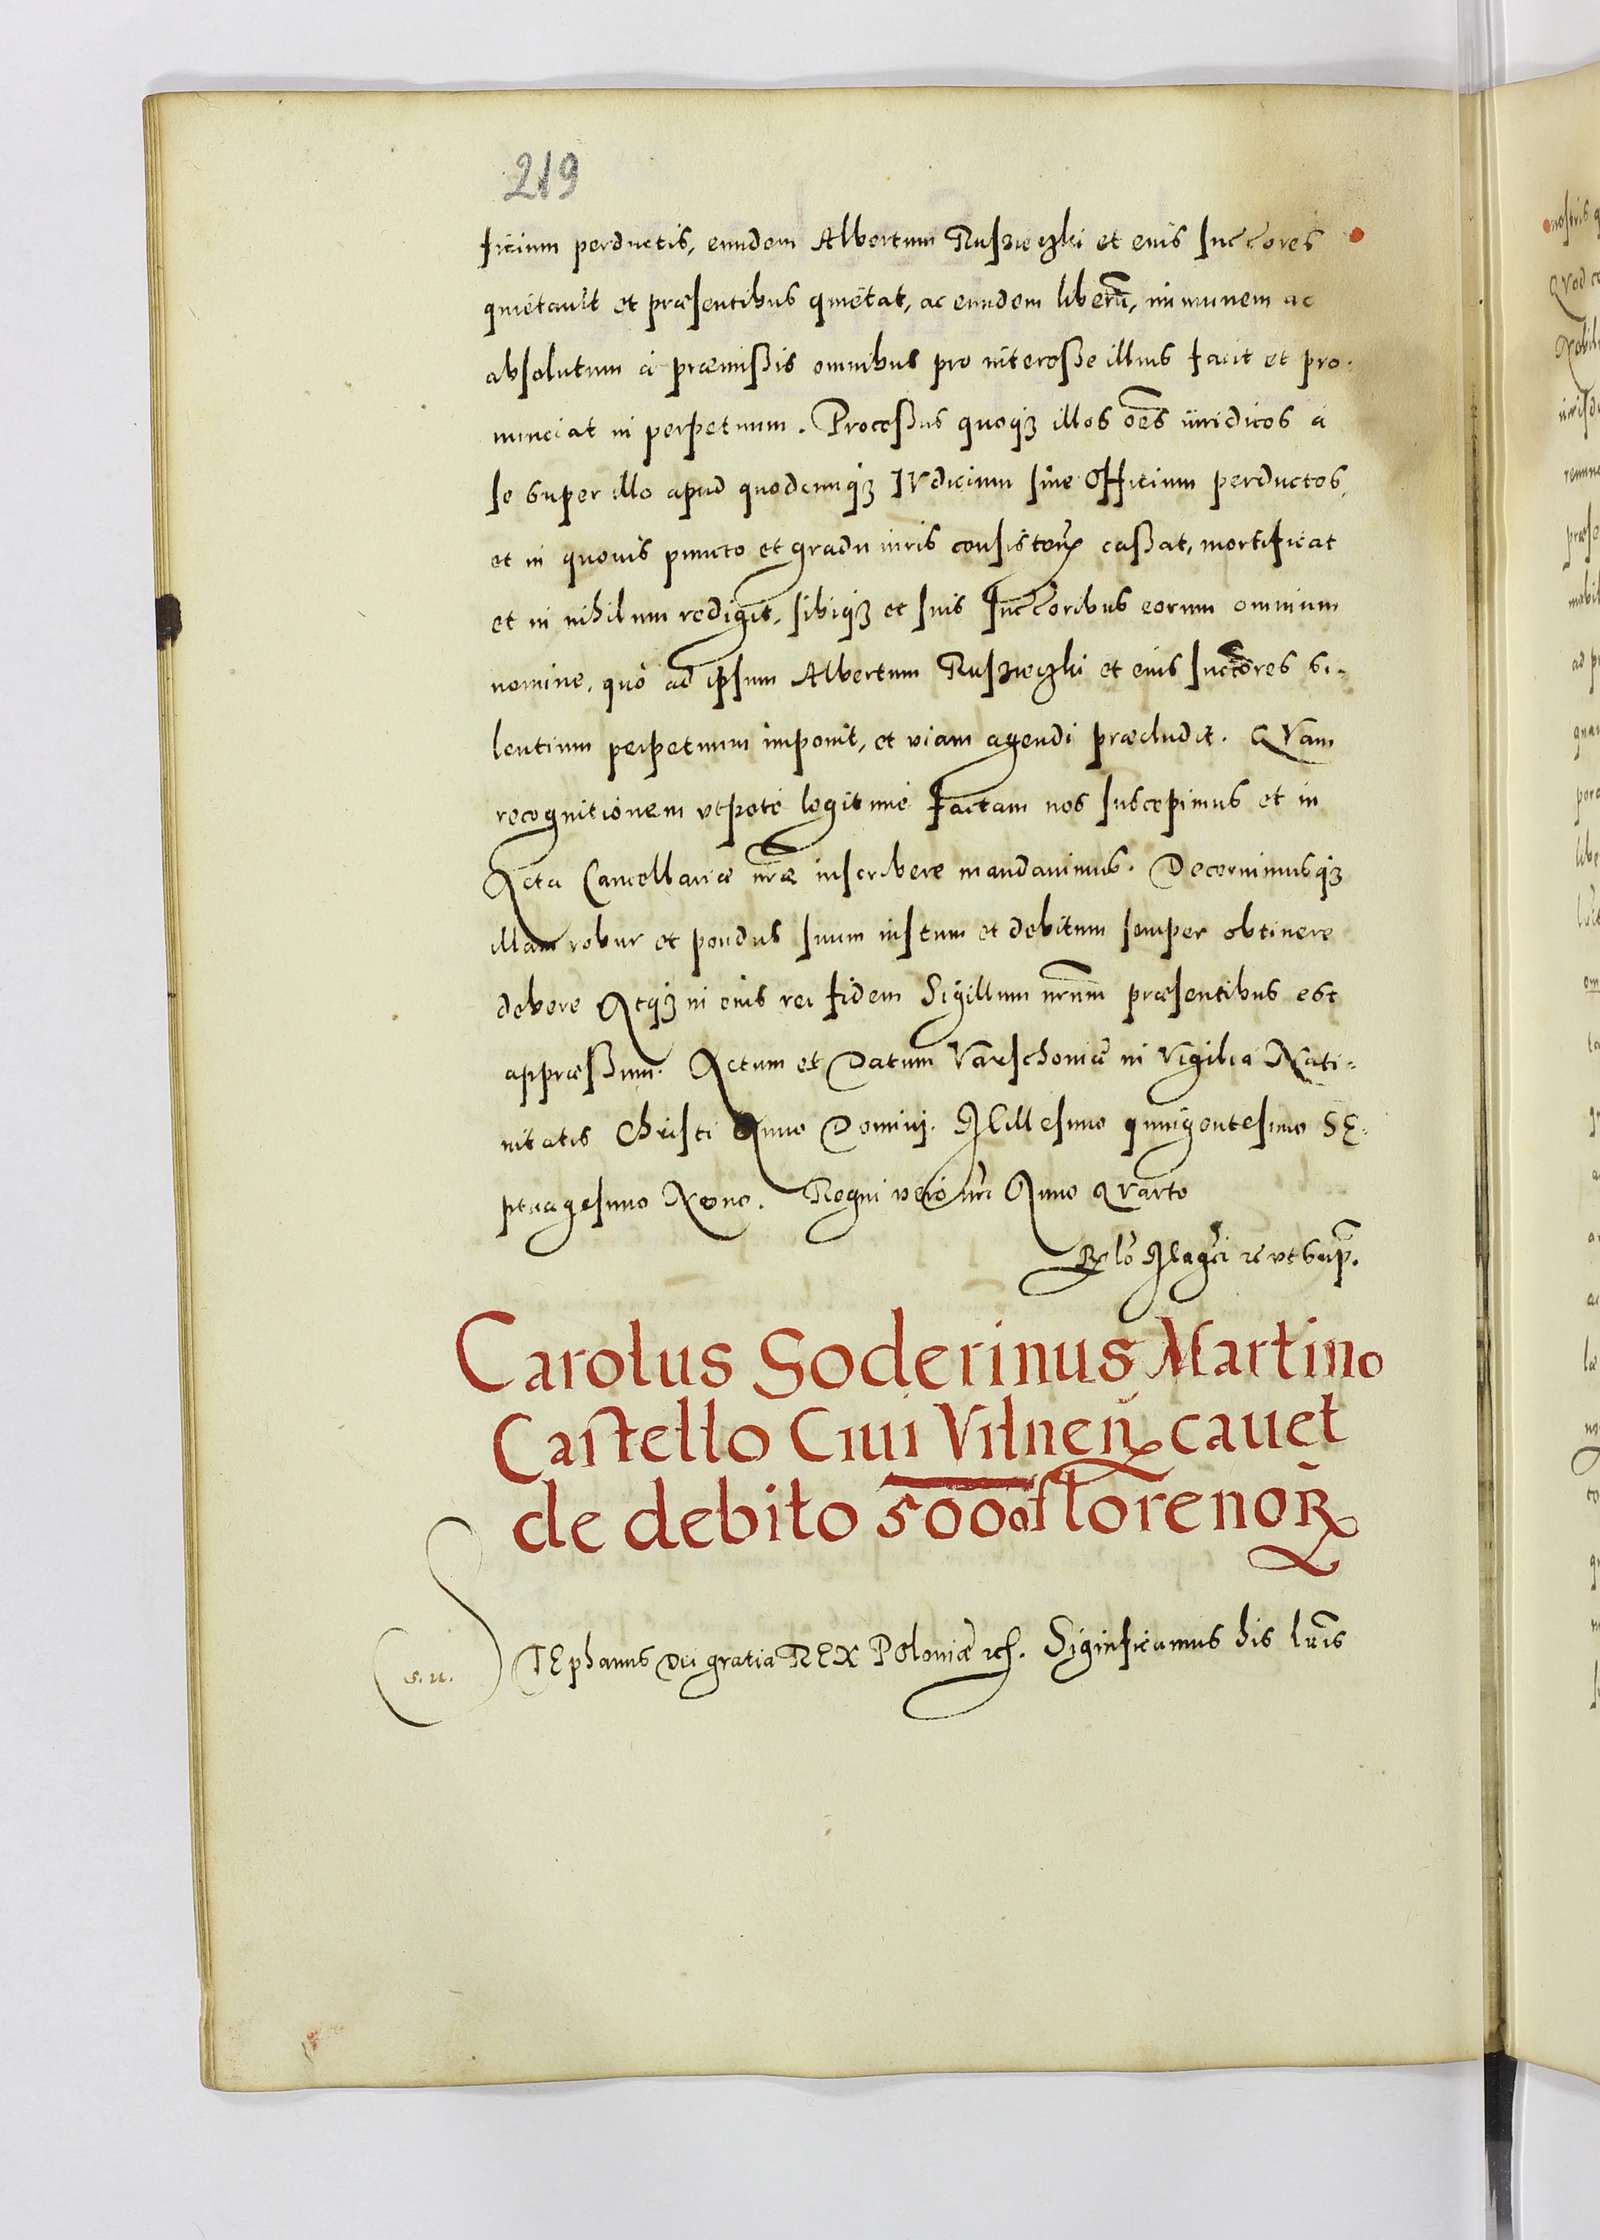 219
ficium perductis, eundem Albertum Ruszieczki et eius succores
quietauit et præsentibus quietat, ac eundem liberū, immunem ac
absolutum à præmißis omnibus pro intereße illius facit et pro-
nunciat in perpetuum. Proceßus quoqȝ illos oēs iuridicos à
se super illo apud quodcunqȝ IVdicium siue Officium perductos,
et in quouis puncto et gradu iuris consisteñ caßat, mortificat
et in nihilum redigit, sibiqȝ et suis succoribus eorum omnium
nomine, quò ad ipsum Albertum Ruszieczki et eius succores si-
lentium perpetuum imponit, et viam agendi præcludit. QVam
recognitionem vtpotè legitimè factam nos suscepimus et in
Acta Cancellariæ nr̄æ inscribere mandauimus. Decernimusqȝ
illam robur et pondus suum iustum et debitum semper obtinere
debere Atqȝ in eius rei fidem Sigillum nr̄um præsentibus est
appræßum. Actum et Datum Varschouiæ in Vigilia Nati-
uitatis Christi Anno Domini. Millesimo quingentesimo SE-
ptuagesimo Nono. Regni verò nr̄i Anno Quarto
Relō Magcī rc vt sup̄.
Carolus Soderinus Martino
Castello Ciui Vilneñ cauet
de debito 5000 florenoR
STEphanus Dei gratia REX Poloniæ rc. Significamus his lr̄is
s. u.